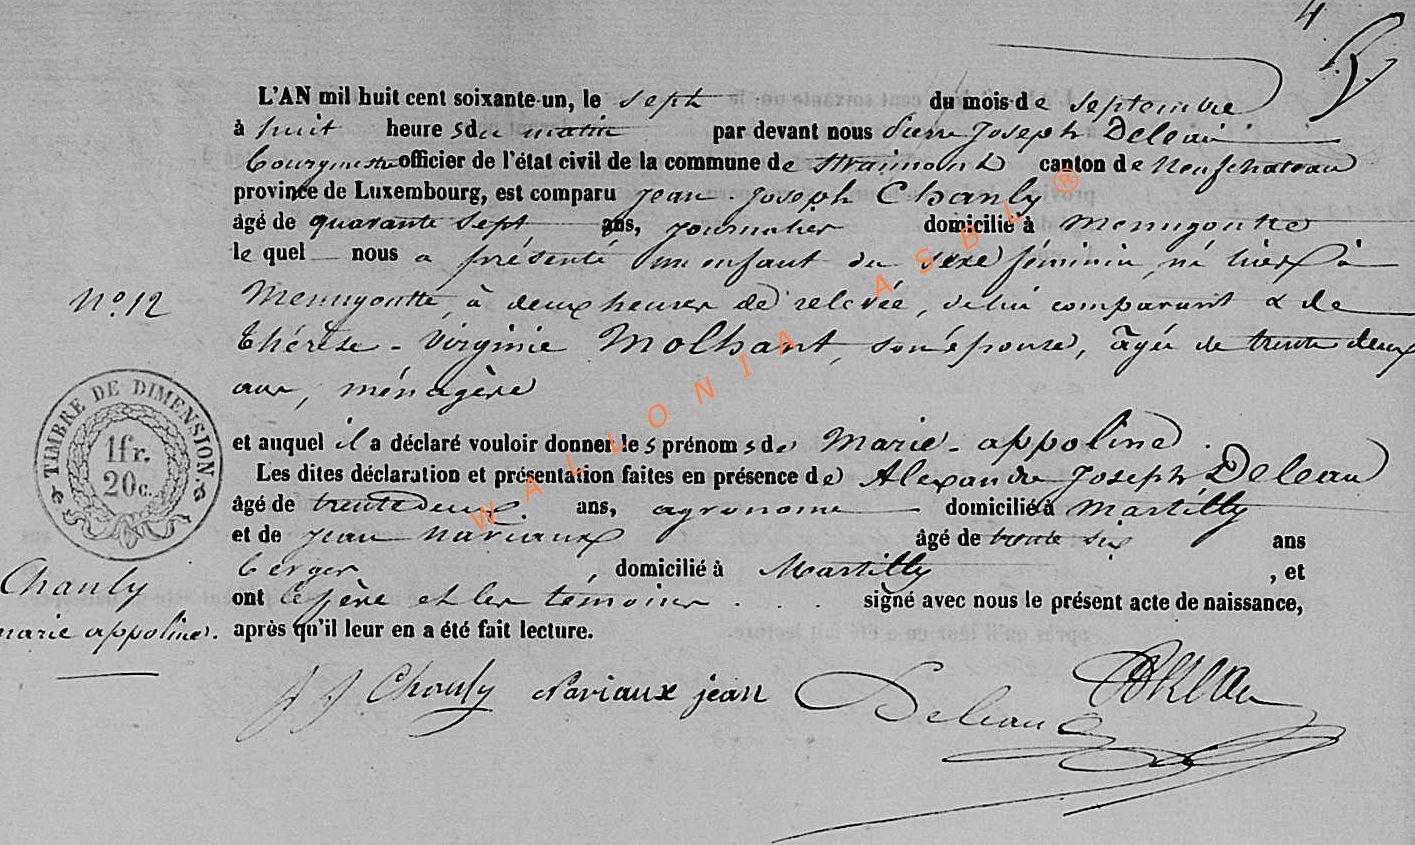 4
L'AN mil huit cent soixante-un, le sept du mois de septembre
à huit heures du matin par devant nous Pierre Joseph Deleau
Bourgmestre officier de l'état civil de la commune de Straimont canton de Neufchateau
province de Luxembourg, est comparu Jean Joseph Chanly
âgé de quarante sept ans, journalier domicilié à Menugoutte
le quel nous a présenté un enfant du sexe féminin, né hier à
N° 12
Menugoutte, à deux heures de relevée, de lui comparant & de
Thérèse - Virginie Molhant, son épouse, agée de trente deux
ans, ménagère
TIMBRE DE DIMENSION.
1fr.
20c.
et auquel il a déclaré vouloir donner les prénoms de Marie - appoline.
Les dites déclaration et présentation faites en présence de Alexandre Joseph Deleau
âgé de trente deux ans, agronome domicilié à Martilly
et de Jean Naviaux âgé de trente six ans
berger, domicilié à Martilly, et
ont le père et les témoins . . . signé avec nous le présent acte de naissance,
après qu'il leur en a été fait lecture.
Chanly
marie appoline.
J J Chanly Naviaux jean Deleau
WALLONIA ASBL ®